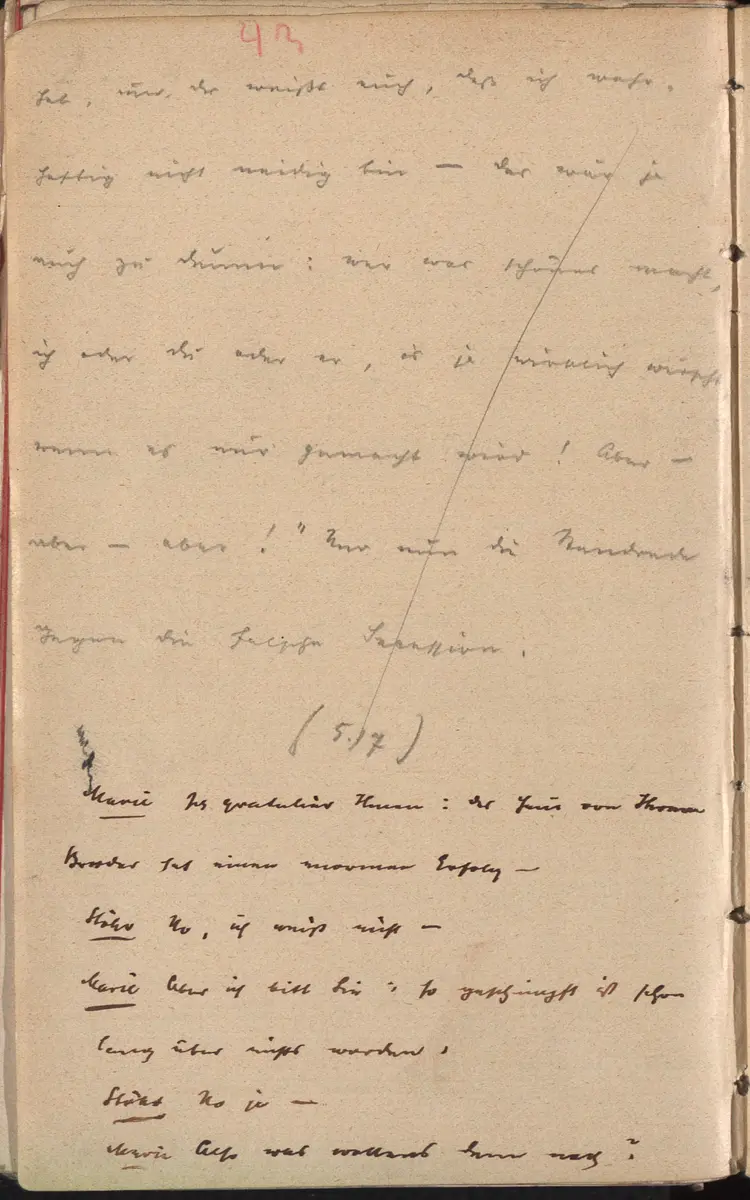 43
hab, nur, du weißt auch, daß ich wahr-
haftig nicht neidig bin — das wär ja
auch zu dumm: wer was schönes macht,
ich oder du oder er, is ja wirklich wurscht
wenn es nur gemacht wird! Aber —
aber — aber!" Und nun die Standrede
gegen die falsche Secession.
(5./7)
Marie Ich gratulier Ihnen: das Haus von Ihrem
Bruder hat einen enormen Erfolg —
Stöhr No, ich weiß nicht —
Marie Aber ich bitt Sie: so geschimpft ist schon
lang über nichts worden.
Stöhr No ja —
Marie Also was wollens denn noch?